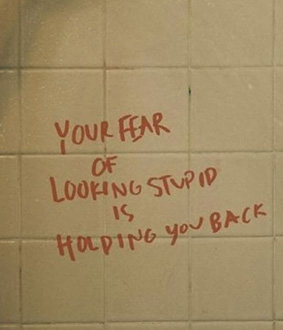 YOUR FEAR
OF
LOOKING STUPID
IS
HOLDING YOU BACK